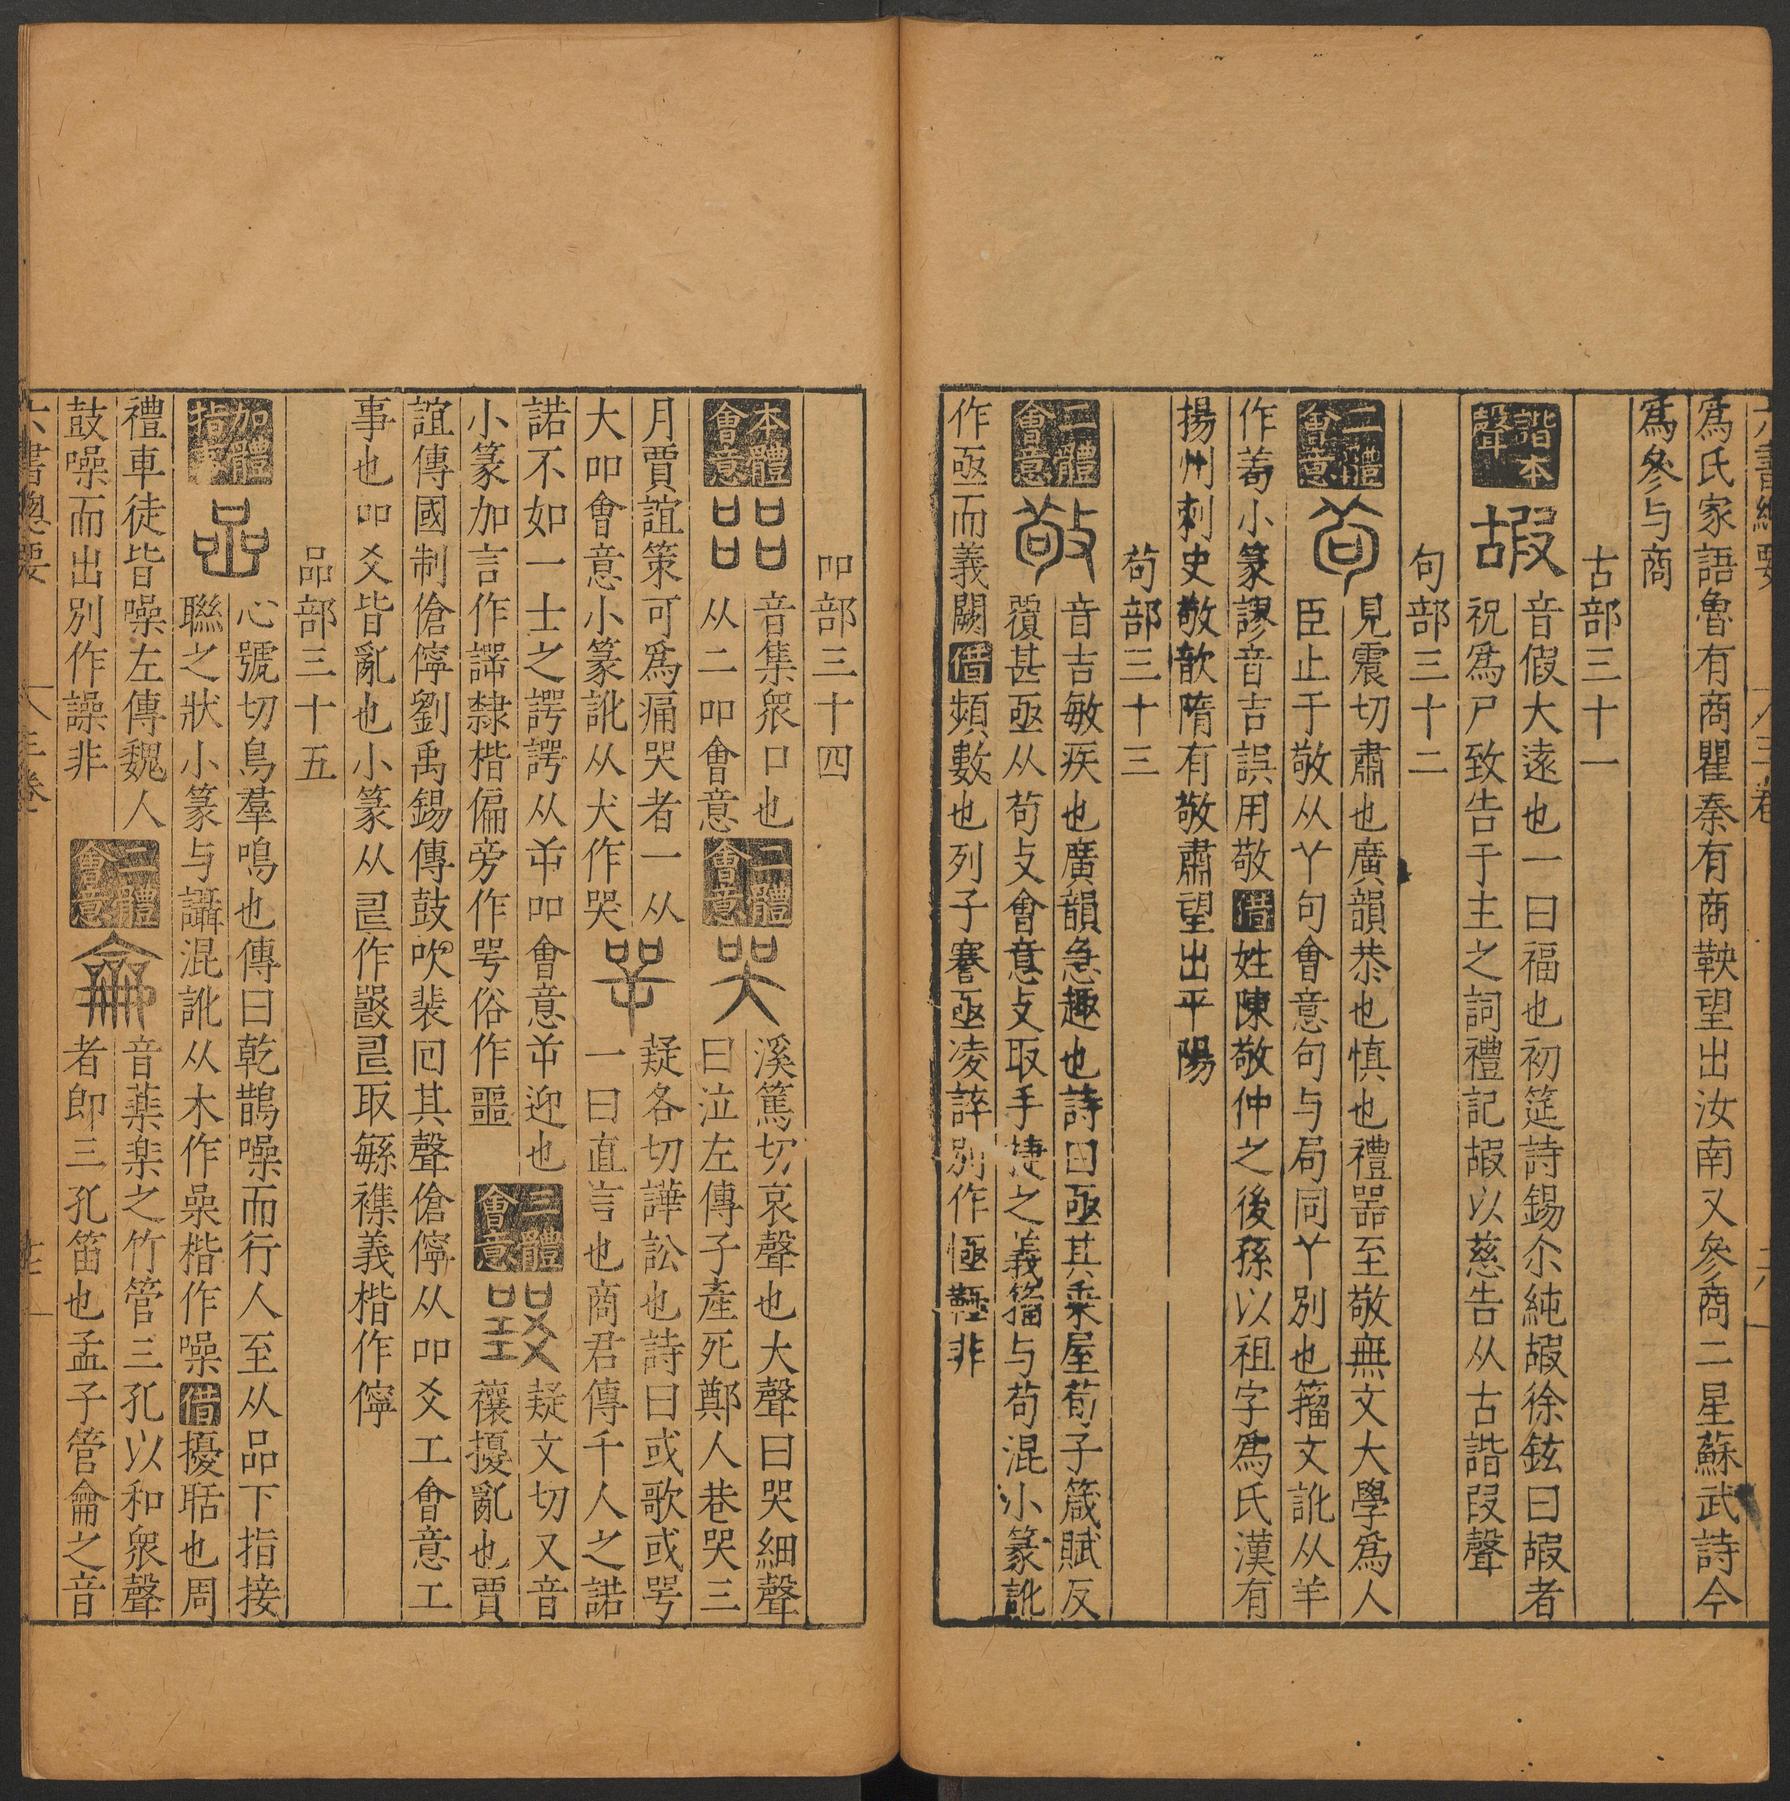 爲氏家語魯有商瞿秦有商鞅望出汝南又參商二星蘇武詩今
爲參与商
古部三十一
諧本聲
嘏
音假大遠也一曰福也初筵詩錫尒純嘏徐鉉曰嘏者
祝爲尸致告于主之詞禮記嘏以慈告从古諧叚聲
句部三十二
二體會意
茍
見震切肅也廣韻恭也慎也禮器至敬無文大學爲人
臣止于敬从丫句會意句与局同丫別也籀文訛从羊
作蒟小篆謬音吉誤用敬借姓陳敬仲之後孫以祖字爲氏漢有
揚州刺史敬歆隋有敬肅望出平陽
茍部三十三
二體會意
敬
音吉敏疾也廣韻急趣也詩曰亟其乘屋荀子箴賦反
覆甚亟从茍攴會意攴取手捷之義籀与苟混小篆訛
作亟而義闕借頻數也列子謇亟凌誶別作極非
吅部三十四
本體會意
㗊
音集衆口也
从二吅會意
二體會意
哭
溪篤切哀聲也大聲曰哭細聲
曰泣左傳子產死鄭人巷哭三
月賈誼策可爲痛哭者一从
大吅會意小篆訛从犬作哭
咢
疑各切譁訟也詩曰或歌或咢
一曰直言也商君傳千人之諾
諾不如一士之諤諤从屰吅會意屰迎也
小篆加言作諤隸楷偏旁作咢俗作噩
三體會意
疑文切又音
禳擾亂也賈
誼傳國制傖儜劉禹錫傳鼓吹裴回其聲傖儜从吅爻工會意工
事也吅爻皆亂也小篆从㠭作㗊㠭取緐襍義楷作儜
品部三十五
加體指事
喿
心號切鳥羣鳴也傳曰乾鵲噪而行人至从品下指接
聯之狀小篆与讘混訛从木作喿楷作噪借擾聒也周
禮車徒皆噪左傳魏人
鼓噪而出別作譟非
二體會意
龠
音藥樂之竹管三孔以和衆聲
者即三孔笛也孟子管龠之音
六書總要 三卷